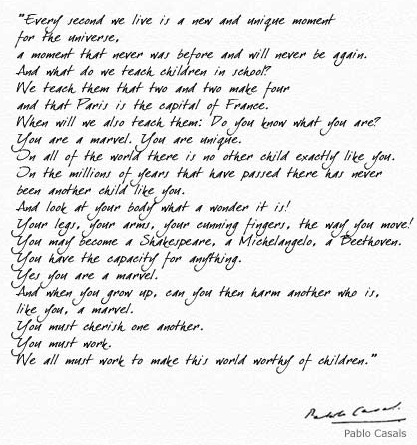 "Every second we live is a new and unique moment
for the universe,
a moment that never was before and will never be again.
And what do we teach children in school?
We teach them that two and two make four
and that Paris is the capital of France.
When will we also teach them: Do you know what you are?
You are a marvel. You are unique.
In all of the world there is no other child exactly like you.
In the millions of years that have passed there has never
been another child like you.
And look at your body what a wonder it is!
Your legs, your arms, your cunning fingers, the way you move!
You may become a Shakespeare, a Michelangelo, a Beethoven.
You have the capacity for anything.
Yes you are a marvel.
And when you grow up, can you then harm another who is,
like you, a marvel.
You must cherish one another.
You must work.
We all must work to make this world worthy of children."
Pablo Casals.
Pablo Casals